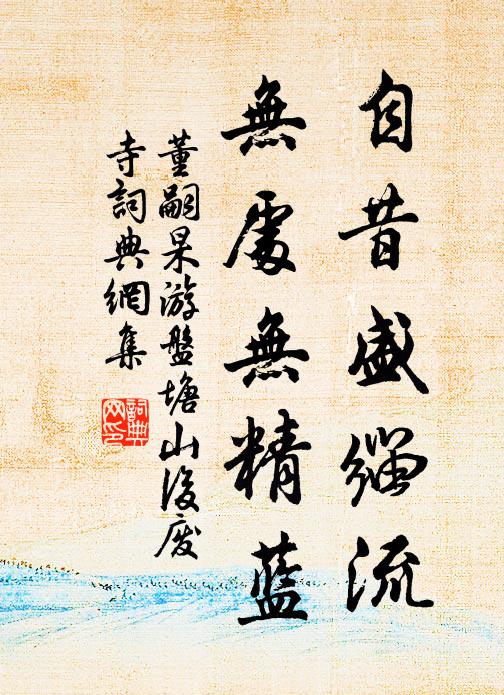 自昔盛缁流
無處無精藍
董嗣杲游盤塘山後廢
寺詞典網集
詞典網印